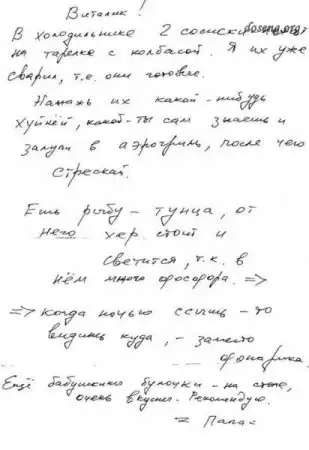 Виталик!
В холодильнике 2 сосиски
на тарелке с колбасой. Я их уже
сварил, т.е. они готовые.
Намажь их какой-нибудь
хуйнёй, какой-ты сам знаешь и
залупи в аэрогриль, после чего
стрескай.
Ешь рыбу - тунца, от
него хер стоит и
светится, т.к. в
нём много фосфора. =>
=> когда ночью ссышь - то
видишь куда, - заместо
фонарика.
Ещё бабушкины булочки - на столе,
очень вкусные. Рекомендую.
= Папа =